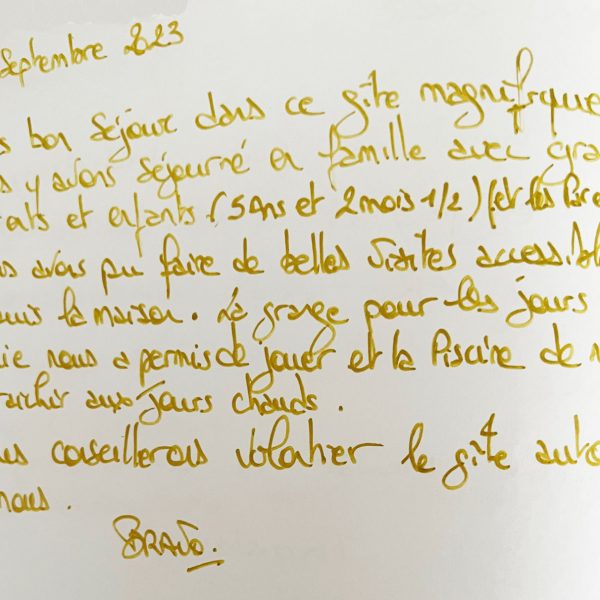 Septembre 2023
s bon séjour dans ce gîte magnifique
s y avons séjourné en famille avec gra
ents et enfants (5 Ans et 2 mois 1/2) (et les
us avons pu faire de belles visites accessibl
uis la maison. La grange pour les jours
uie nous a permis de jouer et la Piscine de n
raichir aux jours chauds.
us conseillerons volontier le gîte auto
nous.
BRAVO.